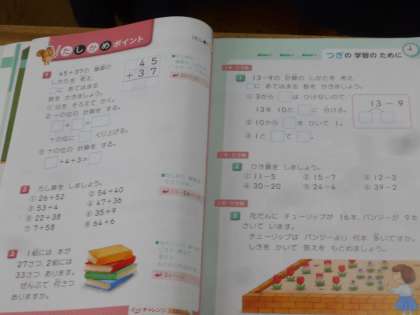 たしかめ ポイント
1 45+37の 筆算の
しかたを 考え、
□に あてはまる
数を かきましょう。
45
+37
① 位を そろえて かく。
② 一の位の 計算を する。
□+□=□
十の位に くり上げる。
③ 十の位の 計算を する。
□+4+3=□
2 たし算を しましょう。
① 26+52 ② 54+40
③ 53+4 ④ 47+36
⑤ 22+38 ⑥ 35+9
⑦ 7+58 ⑧ 64+6
3 1組には 本が
27さつ、2組には
33さつ あります。
ぜんぶで 何さつ
ありますか。
チャレンジ
つぎの 学習の ために
1 13-9の 計算の しかたを 考え、
□に あてはまる 数を かきましょう。
① 3から □は ひけないので、
13を 10と □に 分ける。
② 10から □を ひいて 1。
③ 1と □で □。
13-9
2 ひき算を しましょう。
① 11-5 ② 15-7 ③ 12-3
④ 30-20 ⑤ 24-4 ⑥ 39-2
3 花だんに チューリップが 16本、パンジーが 9本
さいて います。
チューリップは パンジーより 何本 多いですか。
しきを かいて 答えを もとめましょう。